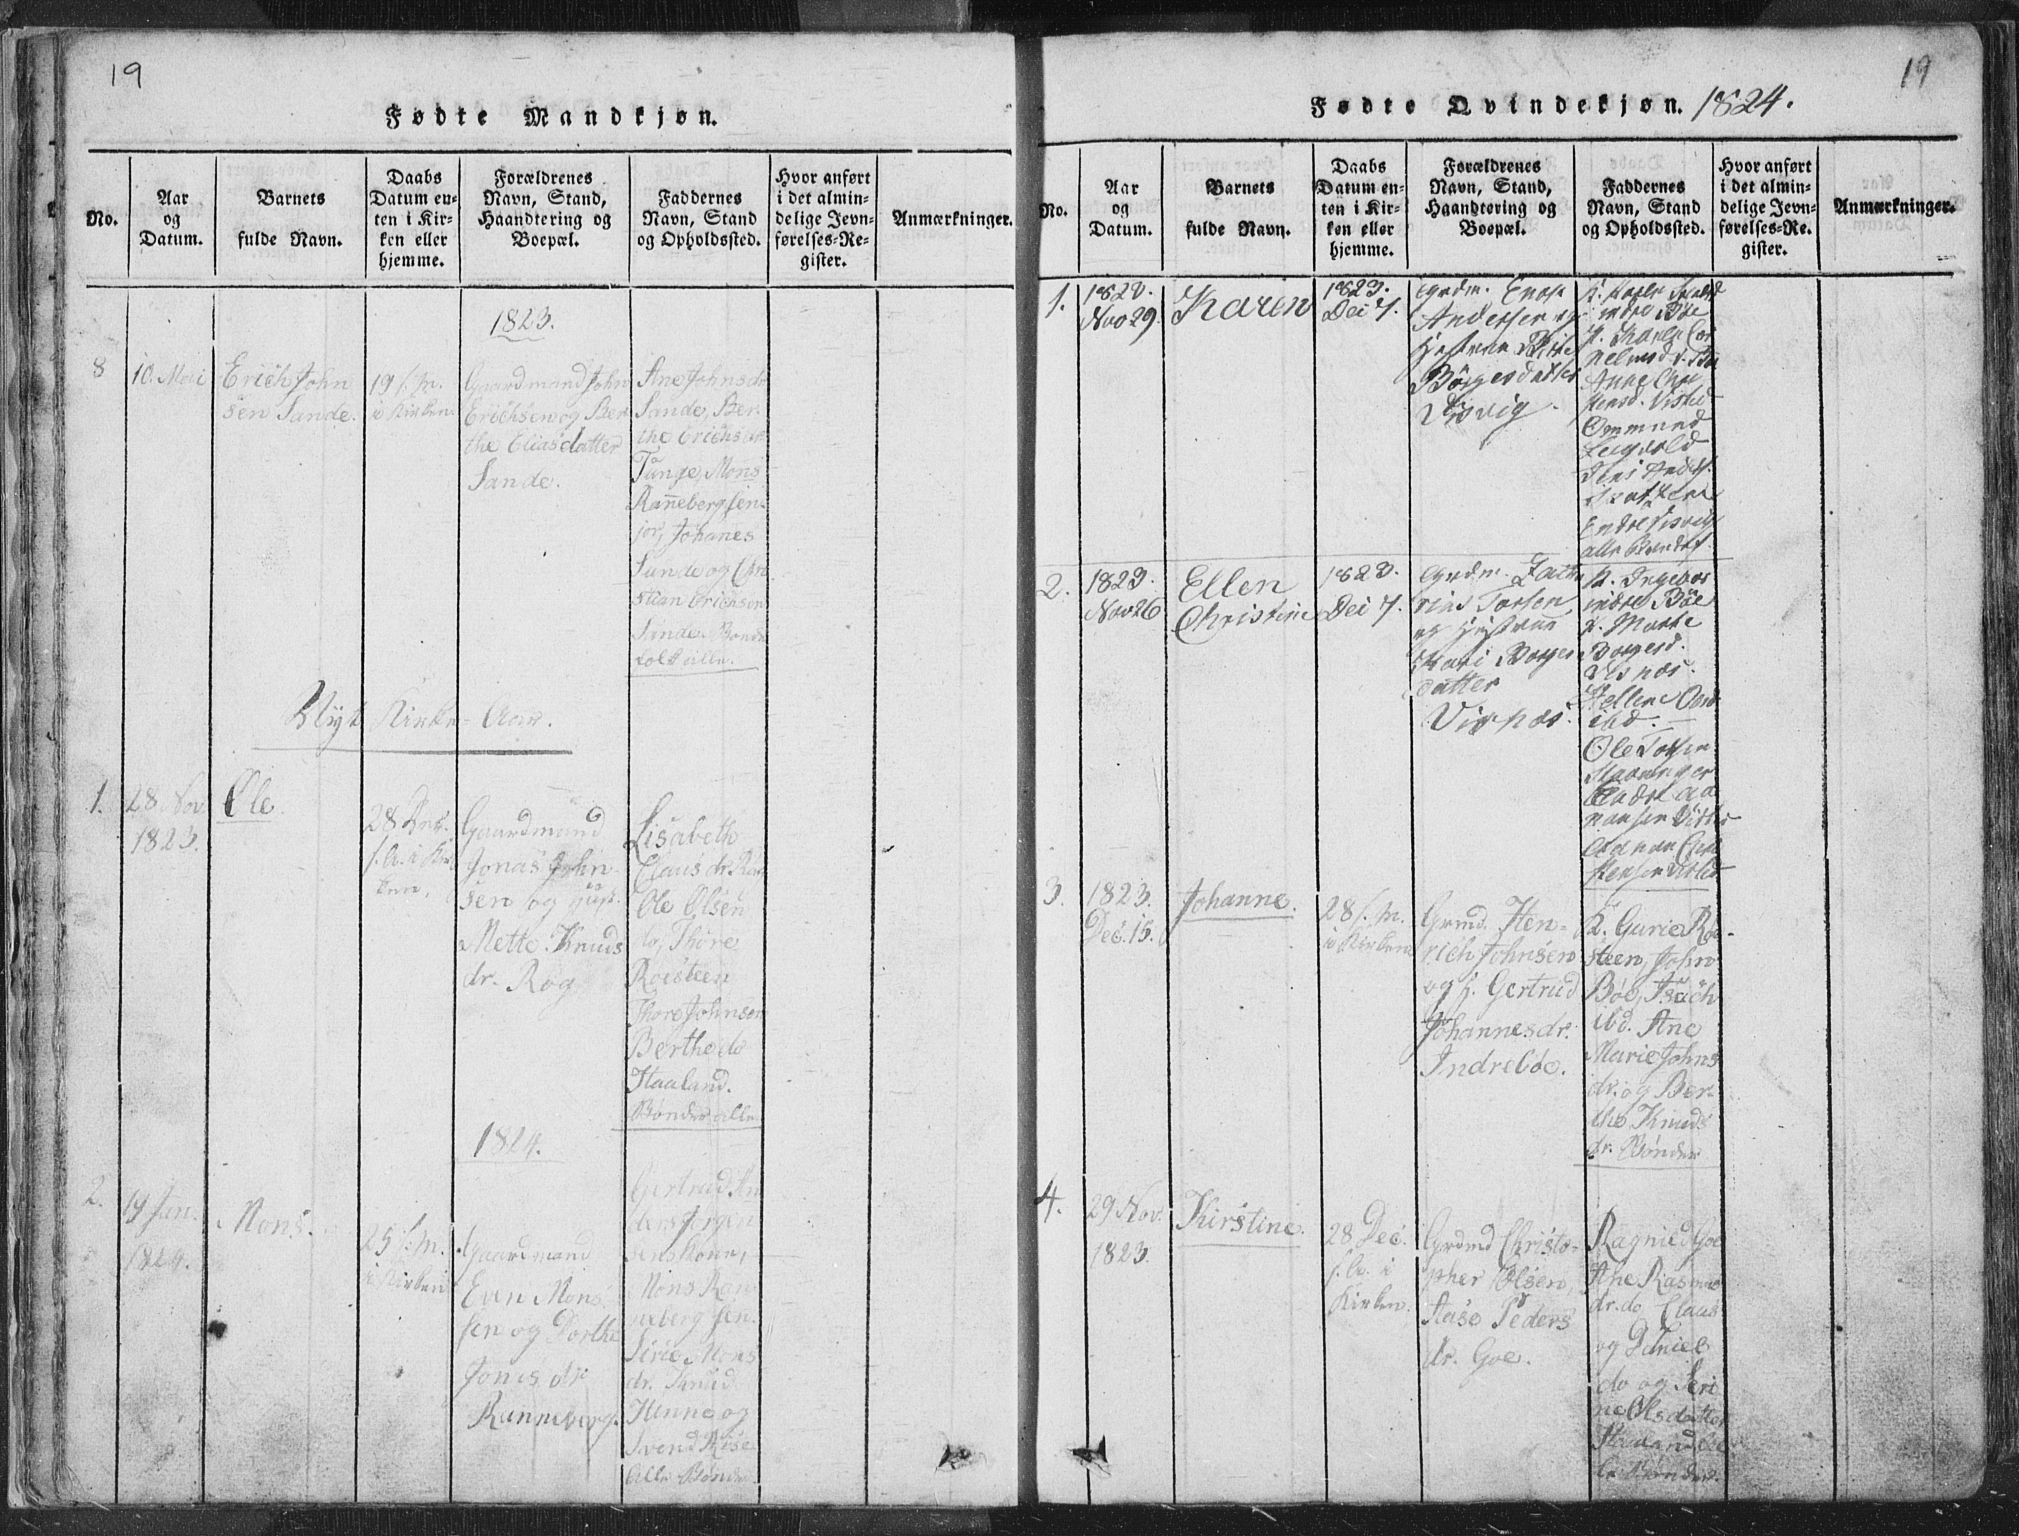 19
Fødte Mandkjøn.
No.
Aar
og
Datum.
Barnets
fulde Navn.
Daabs
Datum en-
ten i Kir-
ken eller
hjemme.
Forældrenes
Navn, Stand,
Haandtering og
Boepæl.
Faddernes
Navn, Stand
og Opholdssted.
Hvor anført
i det almin-
delige Jevn-
førelses-Re-
gister.
Anmærkninger.
1823.
8
10. Mai
Erich John
sen Sande.
19 f. M.
i Kirken
Gaardmand John
Erichsen og Ber
the Eliasdatter
Sande.
Ane Johnsdr
Sande, Ber
the Erichsdr
Tange, Mons
Ranneberg sen-
jor, Johanes
Sande og Chri
stian Erichsen
Sande. Bønder
folk alle.
Nyt Kirke-Aar.
1.
28 Nov
1823.
Ole
28 Dec.
f. A. i Kir
ken.
Gaardmand
Jonas John
sen og Hust.
Mette Knuds
dr. Røg
Lisabeth
Claus dr. Røg
Ole Olsen
do, Thore
Roesteen
Thore Johnsen
Berthe do
Haaland.
Bønder alle
1824.
2.
19 Jan.
1824.
Mons.
25 f. M.
i Kirken
Gaardmand
Even Mons
sen og Dorthe
Jonis dr
Ranneberg.
Gertrud An
ders Jørgen
sens Kone,
Mons Ran
neberg sen.
Sirie Mons
dr. Knud
Henne og
Svend Rise
alle Bønder.
19
Fødte Qvindekjøn. 1824.
No.
Aar
og
Datum.
Barnets
fulde Navn.
Daabs
Datum en-
ten i Kir-
ken eller
hjemme.
Forældrenes
Navn, Stand,
Haandtering og
Boepæl.
Faddernes
Navn, Stand
og Opholdssted.
Hvor anført
i det almin-
delige Jevn-
førelses-Re-
gister.
Anmærkninger.
1.
1823.
Nov 29.
Karen
1823.
Dei 7.
Grdm.
Andersen og
Hustrue
Børgesdatter
Visvig.
indre Bøe
K. Karen Cor
neliusd.
Anne Chri
stensd. Visted
Ommund
Jens Anders.
Endre Visvig
alle Bønder.
2.
1823.
Nov 26
Ellen
Christine
1823.
Dei 7.
Grdm. Zach
rias Torsen
og Hustrue
Kari Børges
datter
Visnæs.
K. Ingebor
indre Bøe
K. Marte
Børgesd.
Visnæs.
Hellene
ibd.
Ole Tossen
Stavanger
Endre Aa
nensen
Aanen Chri
stensen Visted
3.
1823.
Dec. 15.
Johanne.
28 f. M.
i Kirken
Grmd. Hen-
rich Johnsen
og H. Gertrud
Johannesdr.
Indrebøe.
K. Gurie Roe-
steen, John
Bøe, Isach
ibd. Ane
Marie Johns
dr. og Ber-
the Knuds
dr. Bønder
4.
29 Nov.
1823.
Kirstine.
28 Dec.
f. A. i
Kirken.
Grdmd Christo-
pher Olsen,
Aase Peders
dr. Goe.
Ragnied Goe
Ane Rasmus
dr. do Claus
og Daniel
do og Seri
ne Olsdatter
Bønder.